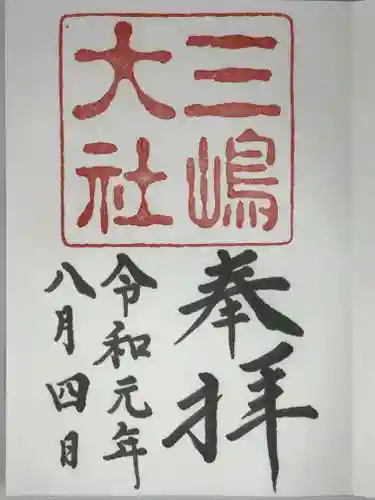 三嶋
大社
奉拝
令和元年
八月四日